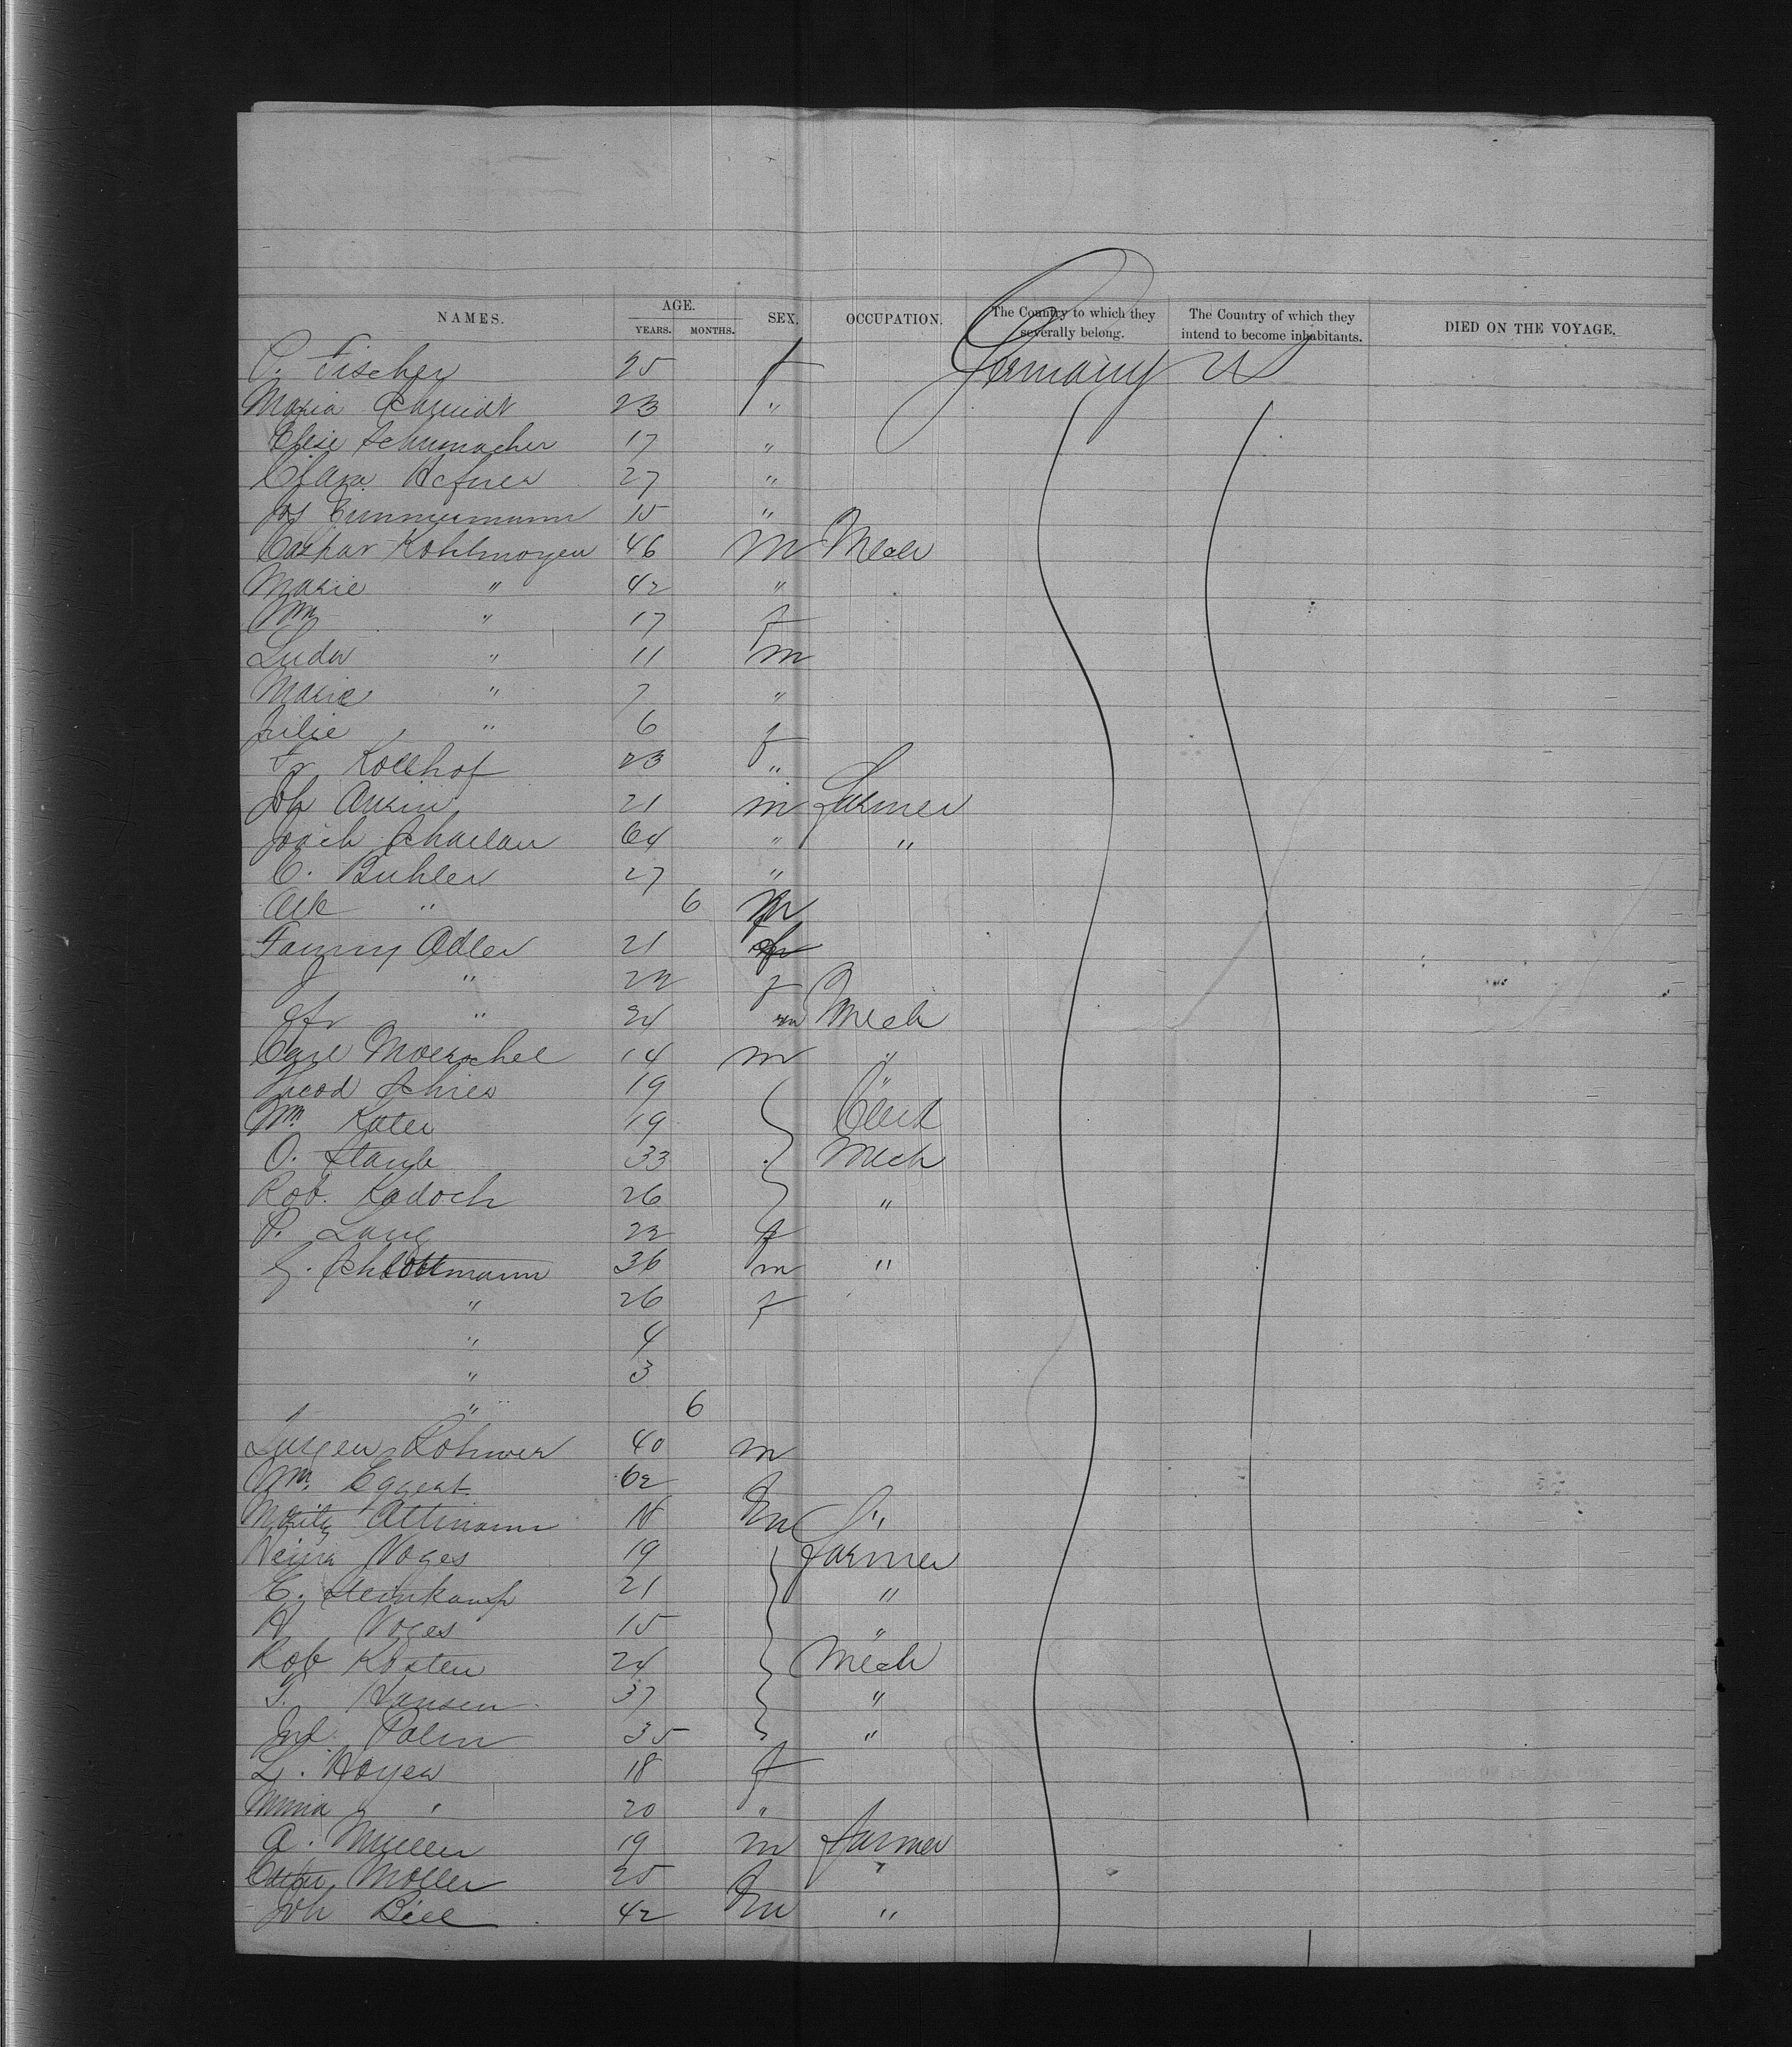 NAMES. AGE. YEARS. MONTHS. SEX. OCCUPATION. The Country to which they severally belong. The Country of which they intend to become inhabitants. DIED ON THE VOYAGE.
Fischer 25 f Germany US
Maria Schmidt 23 "
Elise Schumacher 17 "
Clara Hefner 27 "
Jos Timmermann 15 "
Caspar Kohlmoyen 46 m Mech
Marie " 42 "
Wm " 17 f
Luder " 11 m
Marie " 7 "
Julie " 6 f
Fr Kollhof 23 "
Joh 21 m Farmer
Joach 64 " "
C. Buhler 27 "
" 6
Fanny Adler 21
J " 22 f
" 24 m Mech
Carl Moerschel 14 m "
19 "
Wm Kater 19 Clerk
O. Staub 33 Mech
Rob. Kadoch 26 "
P. Lang 22 f
G. 36 m "
" 26 f
" 4
" 3
" 6
Jurgen Rohwer 40 m
Wm. Eggert 62
Moritz Attmann 18 m "
Voges 19 Farmer
C. Steinkamp 21 "
H Voges 15 "
Rob Kosten 24 Mech
T. Hansen 37 "
Palm 35 "
L. Hoyer 18 f
Minna " 20 "
A. Mueller 19 m Farmer
Moller 25 "
Joh Biel 42 m "